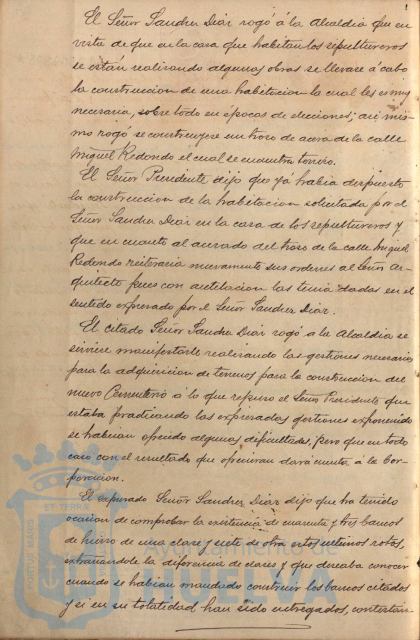 El Señor Sanchez Diaz rogó á la Alcaldia que en
vista de que en la casa que habitan los sepultureros
se están realizando algunas obras se llevare á cabo
la construccion de una habitacion la cual les es muy
necesaria, sobre todo en épocas de elecciones; asi mis-
mo rogó se construyese un trozo de acera de la calle
Miguel Redondo el cual se encuentra terrizo.
El Señor Presidente dijo que yá habia dispuesto
la construccion de la habitacion solicitada por el
Señor Sanchez Diaz en la casa de los sepultureros y
que en cuanto al acerado del trozo de la calle Miguel
Redondo reiteraria nuevamente sus ordenes al Señor Ar-
quitecto pues con antelacion las tenia dadas en el
sentido expresado por el Señor Sanchez Diaz.
El citado Señor Sanchez Diaz rogó a la Alcaldia se
sirviere manifestarle realizando las gestiones necesarias
para la adquisicion de terrenos para la construccion del
nuevo Cementerio á lo que repuso el Señor Presidente que
estaba practicando las expresadas gestiones exponiendo
se habian ofrecido algunas dificultades, pero que en todo
caso con el resultado que ofrecieran dará cuenta á la Cor-
poracion.
El expresado Señor Sanchez Diaz dijo que ha tenido
ocasion de comprobar la existencia de cuarenta y tres bancos
de hierro de una clase y siete de otra estos ultimos rotos,
extrañandole la diferencia de clases y que deseaba conocer
cuando se habian mandado construir los bancos citados
y si en su totalidad han sido entregados, contestan-
PORTUS MARIS
ET TERRÆ
Ayuntamiento de
HUELVA